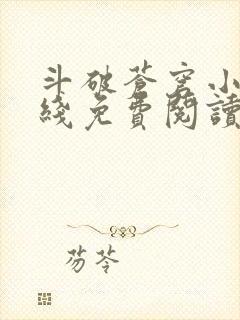 斗破蒼穹小
綫免費閱讀
芴苓